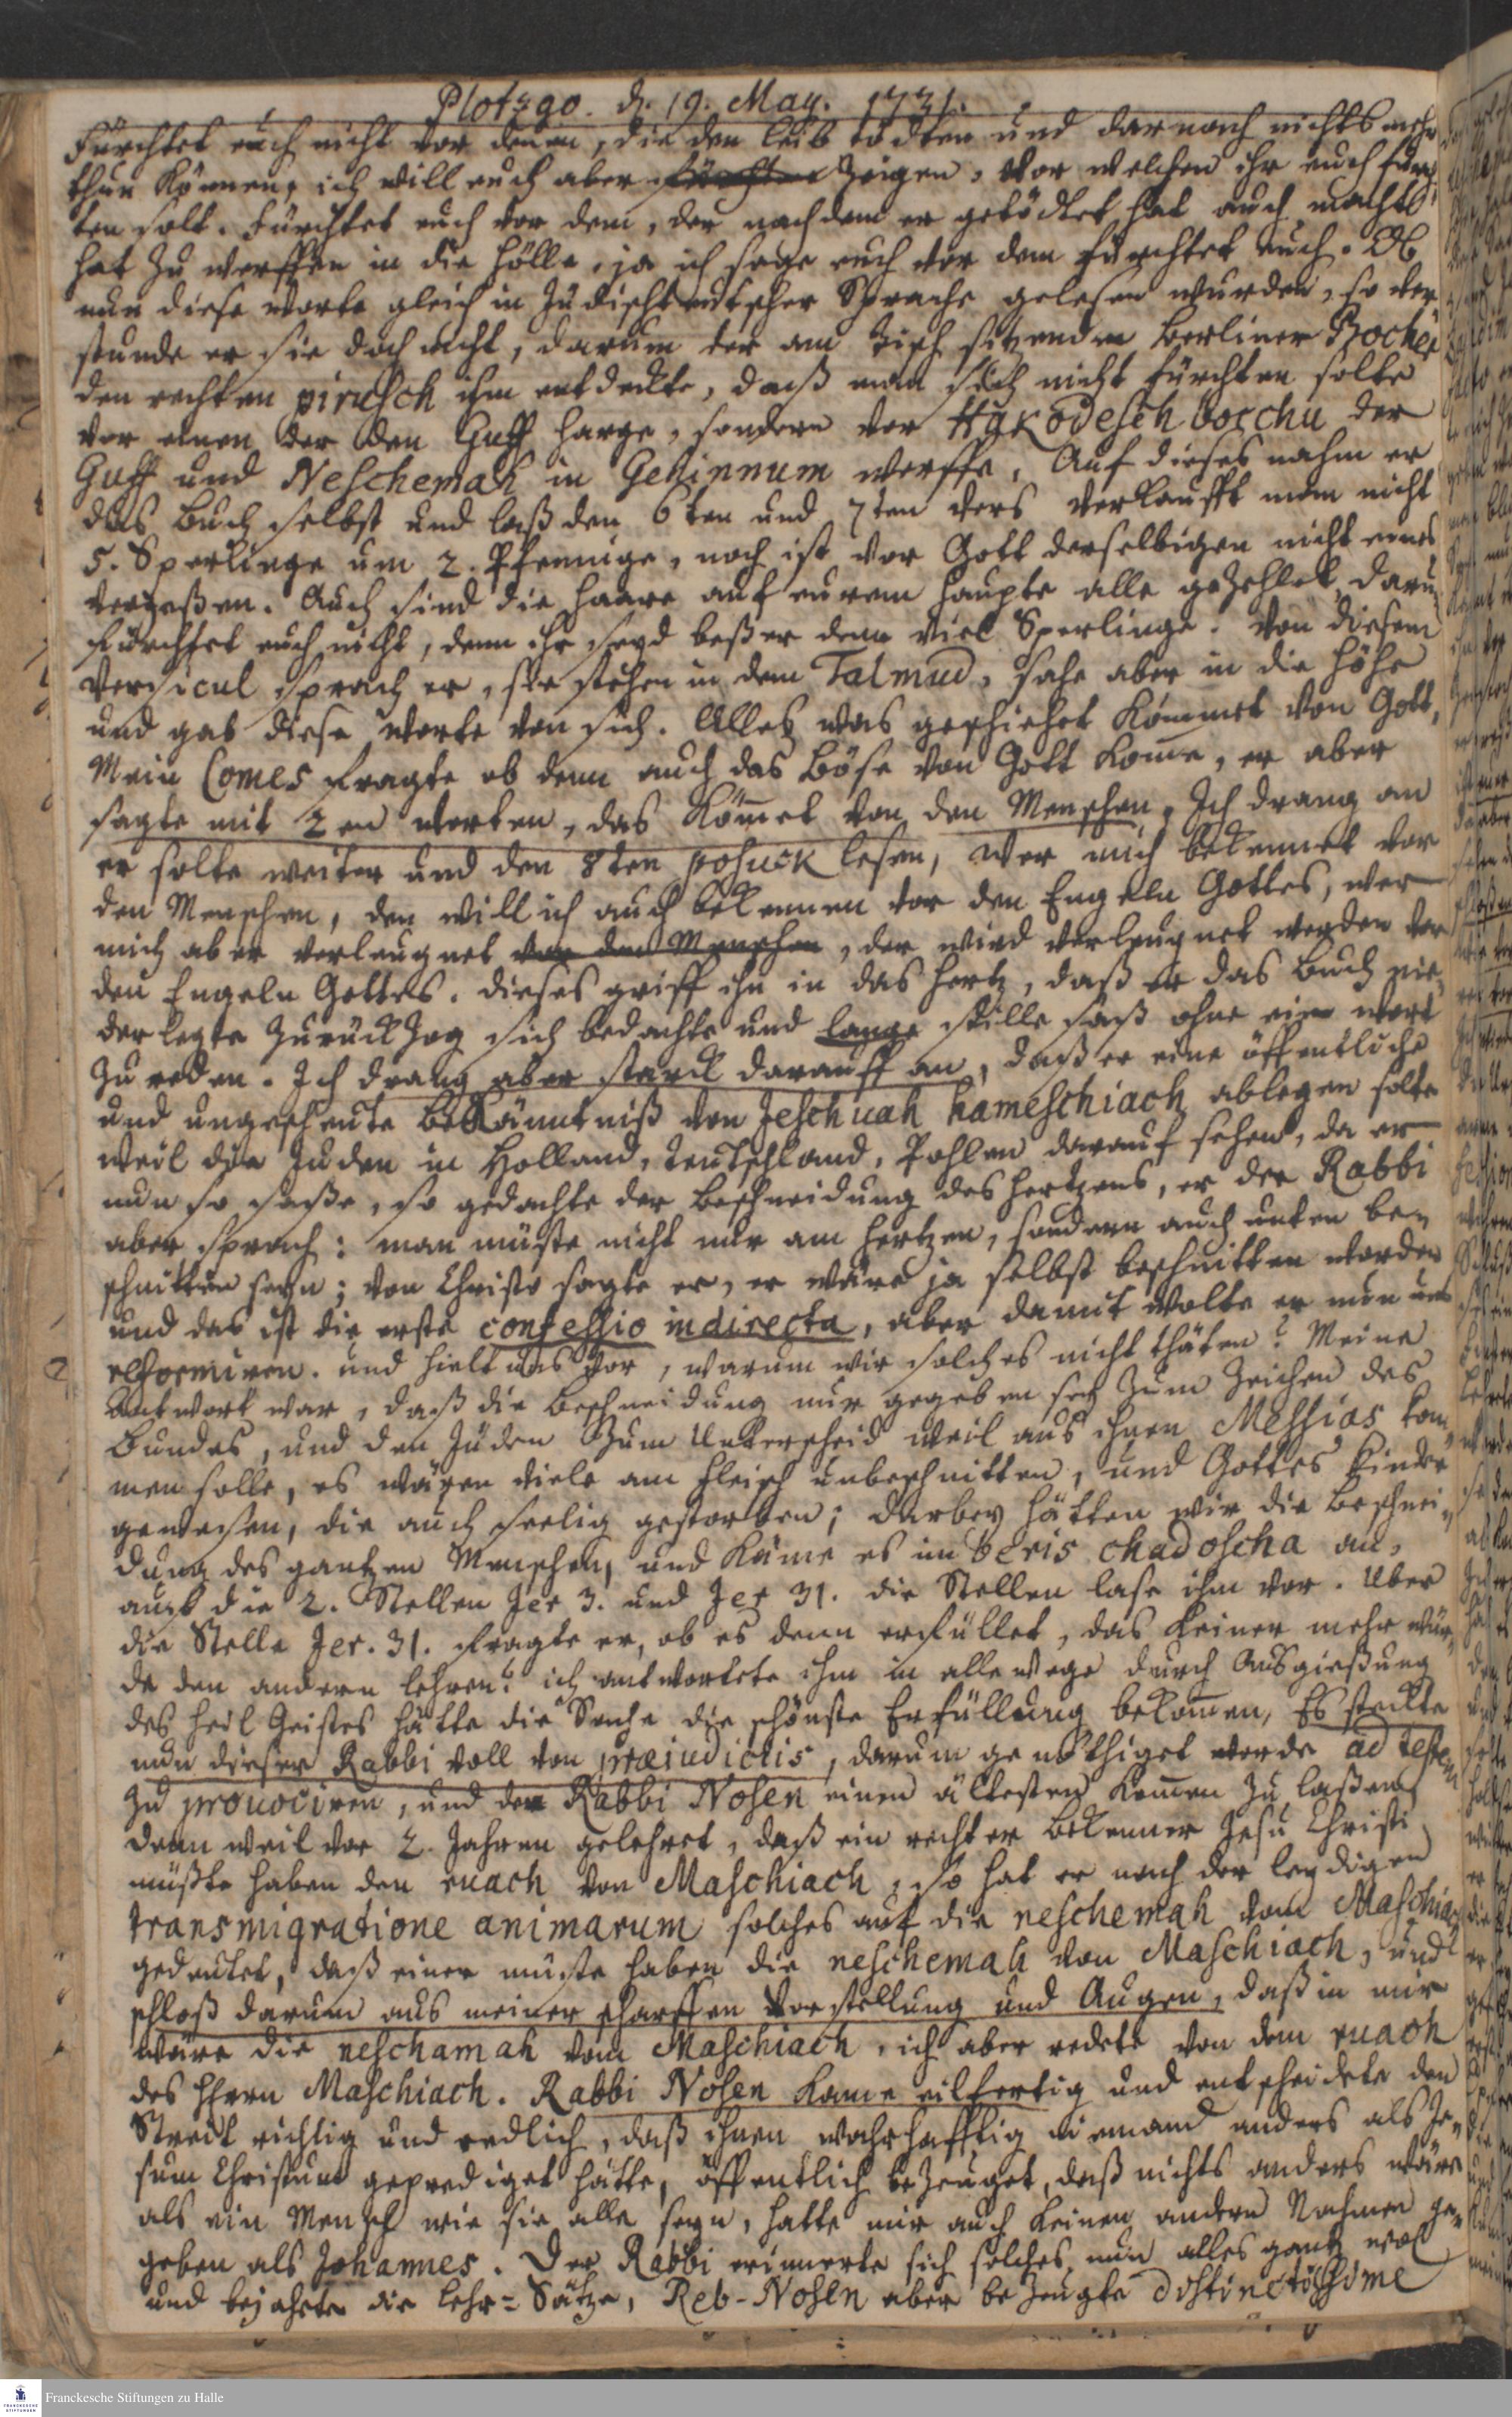 Plotzgo. d. 19. May. 1731.
Fürchtet euch nicht vor denen, die den leib tödten und darnach nichts mehr
thun können, ich will euch aber fürchten zeigen, vor welchen ihr euch fürch
ten solt. Fürchtet euch vor dem, der nach dem er getödtet hat auch macht
hat zu werffen in die Hölle, ja ich sage euch vor dem fürchtet euch. Ob
nun diese worte gleich in Jüdischteutscher Sprache gelesen wurden, so ver
stunde er sie doch nicht, darum der am tisch sitzenden Berliner Bocher
den rechten pirusch ihm entdeckte, daß man sich nicht fürchten solte
vor einen der den Guff harge, sondern vor Hakodesch borchu der
Guff und Neschemah in Gehinnum werffe. Auf dieses nahm er
das Buch selbst und laß den 6ten und 7ten vers verkaufft man nicht
5. Sperlinge um 2. Pfennige, noch ist vor Gott derselbigen nicht eines
vergeßen. Auch sind die Haare auf eurem Haupte alle gezehlet, daru
fürchtet euch nicht, denn ihr seyd beßer denn viel Sperlinge. Von diesem
Versicul sprach er, sie stehen in dem Talmud, sahe aber in die Höhe
und gab diese worte von sich. Alles was geschiehet kömmet von Gott,
Mein Comes fragte ob denn auch das Böse von Gott kom̅e, er aber
sagte mit 2en worten, das köm̅et von den Menschen. Ich drang an
er solte weiter und den 8ten posuck lesen, Wer mich bekennet vor
den Menschen, den will ich auch bekennen vor den Engeln Gottes, wer
mich aber verleugnet vor den Menschen, der wird verleugnet werden vor
den Engeln Gottes. Dieses griff ihn in das Hertz, daß er das Buch nie,
derlegte zurück zog sich bedachte und lange stille saß ohne ein wort
zu reden. Ich drang aber starck darauff an, daß er eine öffentliche
und ungescheute Bekänntniß von Jeschuah hameschiach ablegen solte
weil die Juden in Holland, Teutschland, Pohlen darauf sehen, da er
nun so saße, so gedachte der Beschneidung des Hertzens, er der Rabbi
aber sprach: man müste nicht nur am Hertzen, sondern auch unten be,
schnitten seyn; von Christo sagte er, er wäre ja selbst beschnitten worden
und das ist die erste confessio indirecta, aber damit wolte er nun uns
reformiren. und hielt uns vor, warum wir solches nicht thäten? Meine
Antwort war, daß die Beschneidung nur gegeben sey zum Zeichen des
Bundes, und den Juden zum Unterscheid weil aus ihnen Messias kom,
men solle, es wären viele am Fleisch unbeschnitten, und Gottes Kinder
gewesen, die auch seelig gestorben; darbey hätten wir die Beschnei,
dung des gantzen Menschen, und käme es im beris chadoscha an,
auf die 2. Stellen Jer 3. und Jer 31. die Stellen lase ihm vor. Uber
die Stelle Jer. 31. fragte er, ob es denn erfüllet, das keiner mehr wür,
de den andern lehren? ich antwortete ihm in allewege durch Ausgießung
des Heil Geistes hätte die Sache die schönste Erfüllung bekom̅en, Es steckte
nun dieser Rabbi voll von præiudiciis, darum genöthiget werde ad testem
zu provociren, und den Rabbi Nosen einen ältesten kom̅en zu laßen
denn weil vor 2. Jahren gelehret, daß ein rechter Bekenner Jesu Christi
müßte haben den ruach von Maschiach, so hat er nach der leydigen
transmigratione animarum solches auf die neschemah vom Maschiach
gedeutet, daß einer müste haben die neschemah von Maschiach, und
schloß darum aus meiner scharffen Vorstellung und Augen, daß in mir
wäre die neschamah vom Maschiach, ich aber redete von dem ruach
des Herrn Maschiach. Rabbi Nosen kame eilfertig und entscheidete den
Streit richtig und redlich, daß ihnen wahrhafftig niemand anders als Je,
sum Christum geprediget hätte, öffentlich bezeuget, daß nichts anders wäre
als ein Mensch wie sie alle seyn, hatte mir auch keinen andern Nahmen ge,
geben als Johannes. Der Rabbi erinnerte sich solches nun alles gantz wol
und bejahete die Lehr-Sätze, Reb-Nosen aber bezeugte distinctissime
Franckesche Stiftungen zu Halle